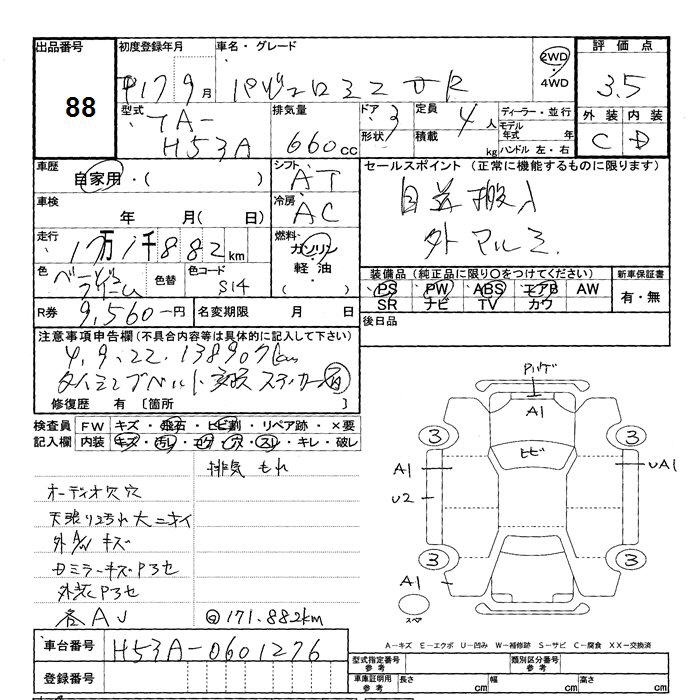 出品番号
88
初度登録年月
車名・グレード
H17 9月
パジェロミニ VR
2WD
4WD
評価点
3.5
外装 内装
C D
型式
TA-
H53A
排気量
660cc
ドア
3
形状
定員
4人
積載
kg
ディーラー・並行
モデル
年式 年
ハンドル 左・右
車歴
自家用・( )
シフト
AT
セールスポイント(正常に機能するものに限ります)
自送搬入
外アルミ
車検
年 月( 日)
冷房
AC
走行
17万1千882km
燃料
ガソリン
軽油・
( )
色
色替
色コード
S14
装備品(純正品に限り○をつけてください)
PS PW ABS エアB AW
SR ナビ TV カワ
新車保証書
有・無
R券
9,560-円
名変期限 月 日
後日品
注意事項申告欄(不具合内容等は具体的に記入して下さい)
4.9.22.138907km
タイミングベルト交換ステッカー有
修復歴 有〔箇所 〕
検査員
記入欄
FW キズ・飛石・ヒビ割・リペア跡・×要
内装 キズ・汚レ・コゲ・穴・スレ・キレ・破レ
排気もれ
オーディオ穴
天張り汚れ大ニオイ
外AW キズ
Dミラーキズ P3セ
外装 P3セ
各AU
◎171.882km
A1
ヒビ
3
3
A1
UA1
U2
3
3
A1
スペア
A-キズ E-エクボ U-凹み W-補修跡 S-サビ C-腐食 XX-交換済
車台番号
H53A-0601276
登録番号
型式指定番号
参考
類別区分番号
参考
車庫証明用
参考
長さ cm
幅 cm
高さ cm